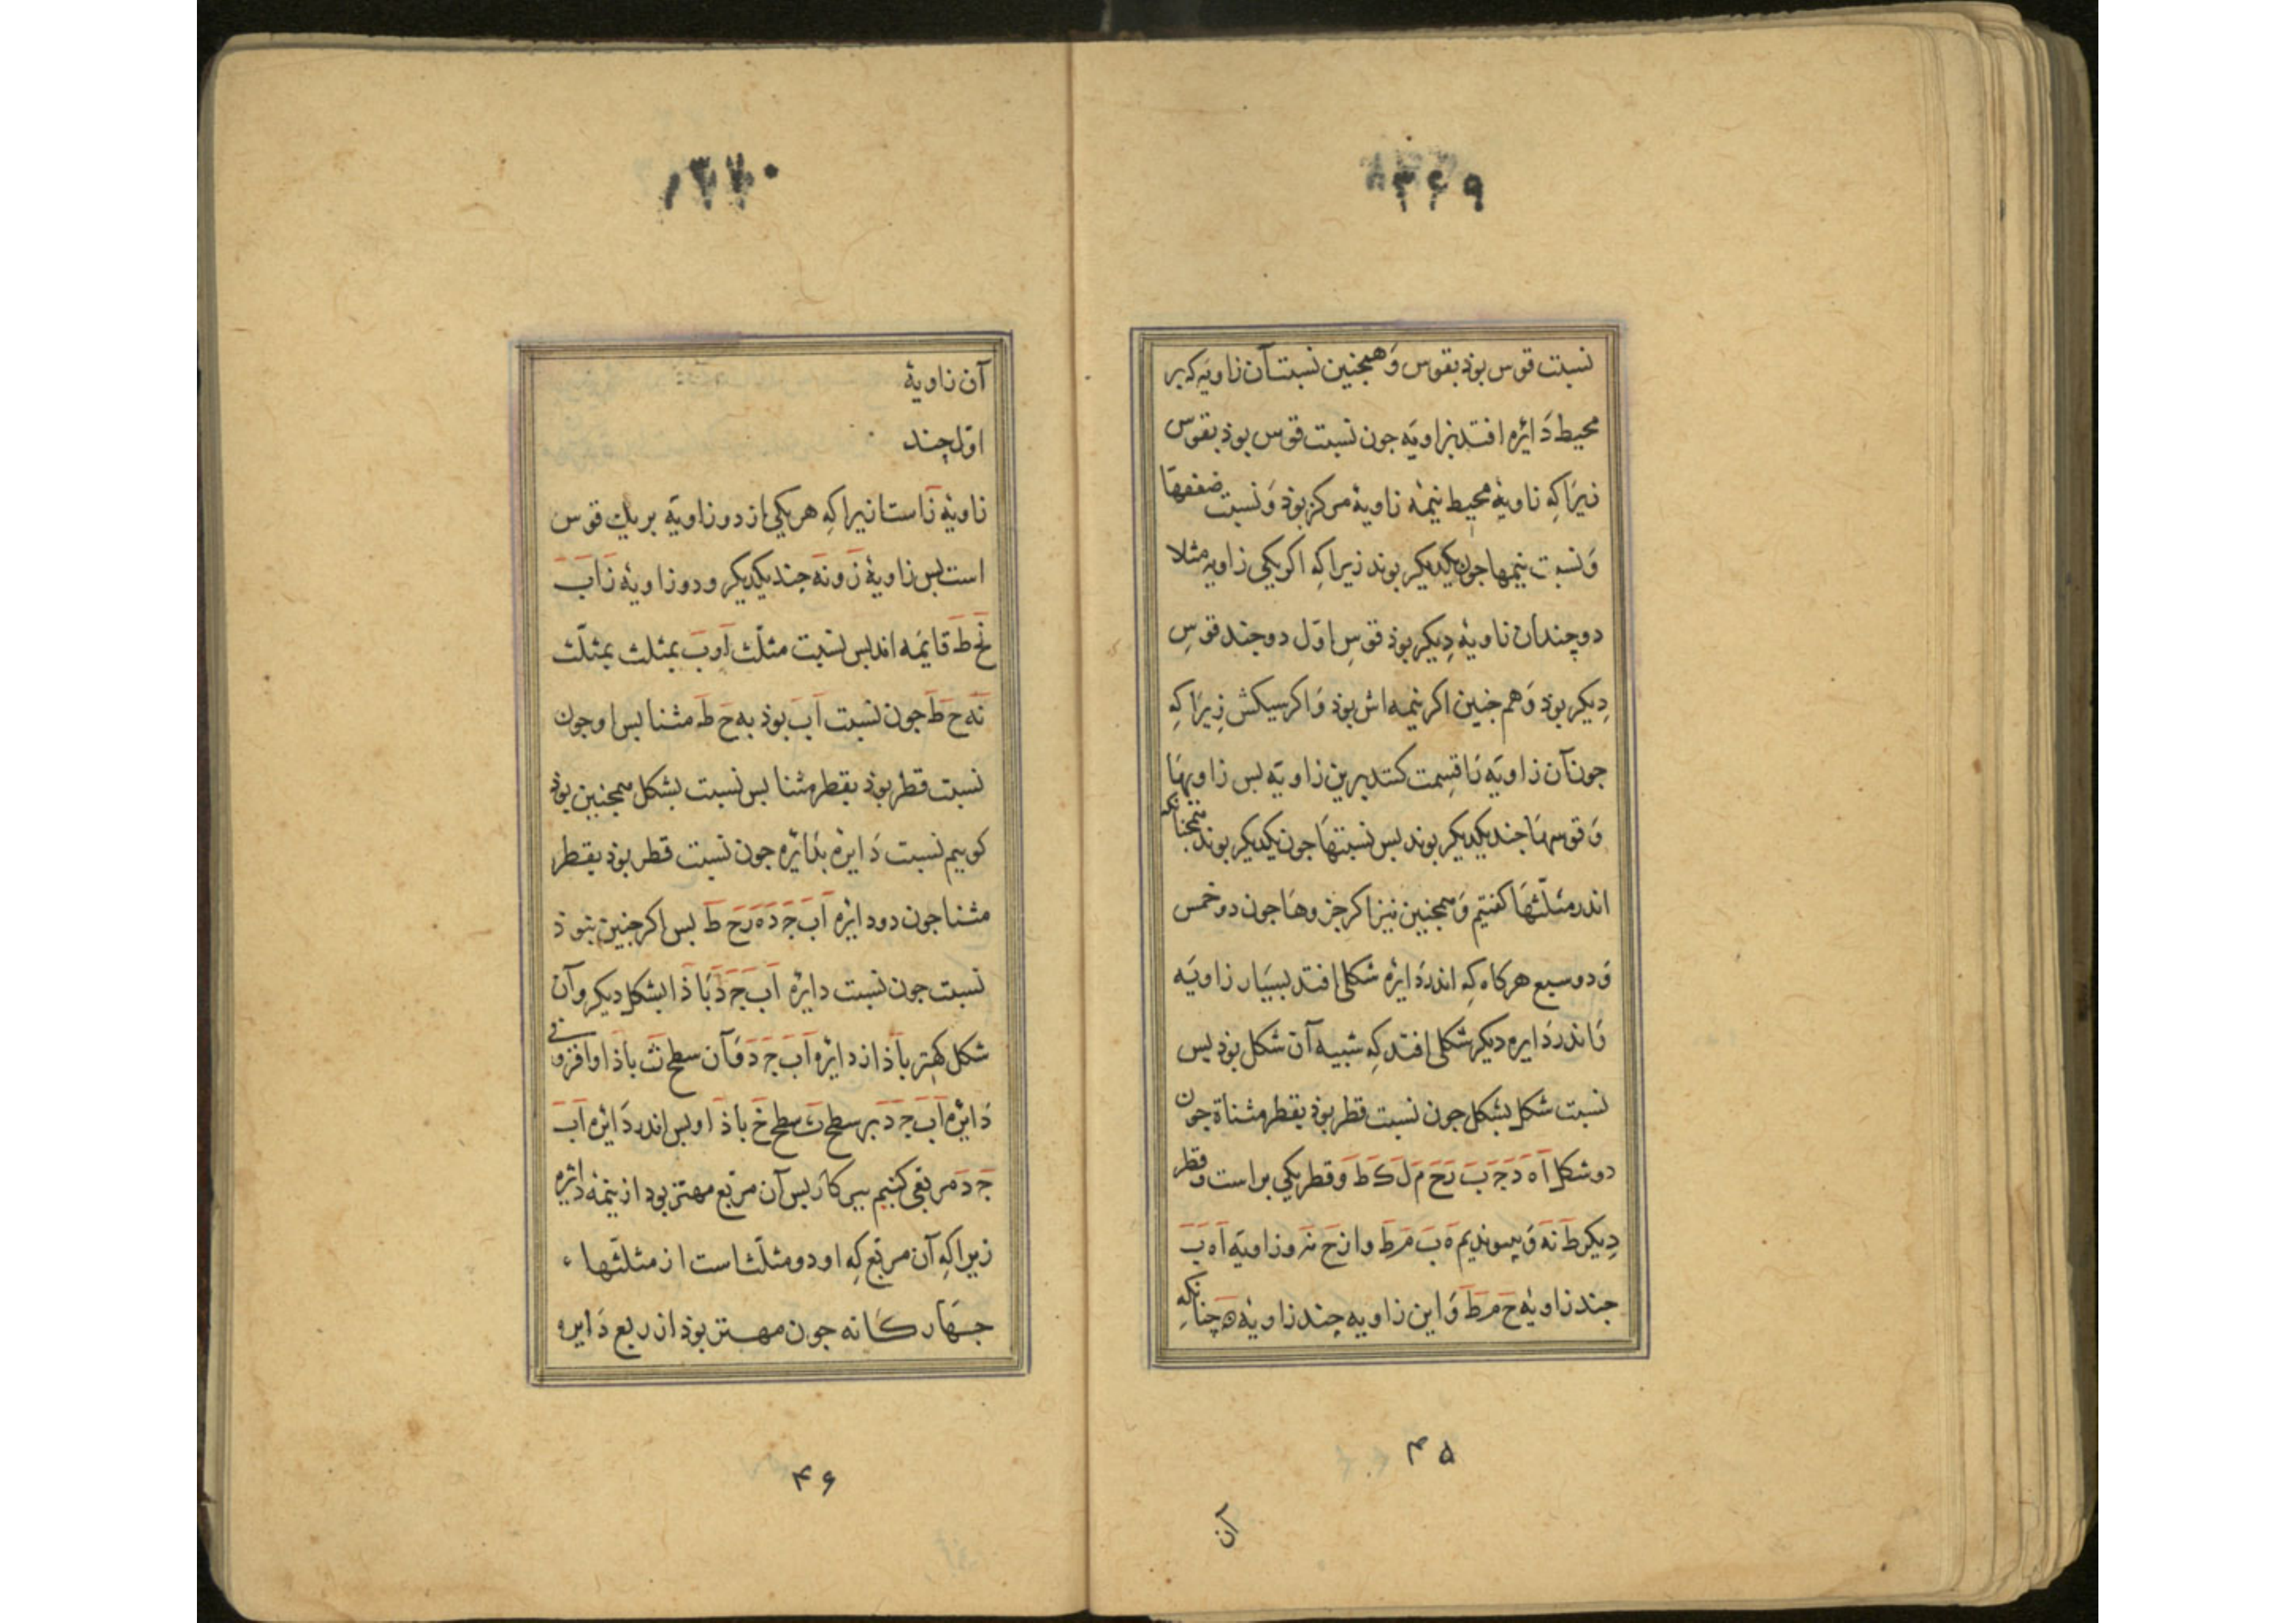 ۱۳۶۹
نسبت قوس بوذ بقوس وَهمجنین نسبت آن زاویَه که بر
محیط دَائره افتد بزاویَه جون نسبت قوس بوذ بقوس
زیرَا کِه زاویهٔ محیط نیمهٔ زاویهٔ مرکز بوذ وَ نسبت ضعفهَا
وَ نسبت نیمها جون یکدیکر بوند زیرا کِه اکر یکی زاویه مثلا
دوچندان زاویهٔ دِیکر بوذ قوسِ اوّل دوجند قوسِ
دِیکر بوذ وَهم جنین اکر نیمه اش بوذ وَاکر سیکش زِیرَا کِه
جون آن زاویَه رَا قِسِمت کنند برین زاویَه بس زاویهَا
وَ قوسهَا جند یکدیکر بوند بس نسبتهَا جون یکدیکر بوند همجنانکه
اندر مثلّثهَا کفتیم وَهمجنین نیز اکر جزوهَا جون دو خمس
وَ دو سبع هرکاه کِه اندر دَائره شکلی افتد بسیَار زاویَه
وَاندر دَایره دیکر شکلی افتد کِه شبیه آن شکل بوذ بس
نسبت شکل بشکل جون نسبت قطر بوذ بقطر مثناة جون
دو شکل اَ هَ دَ جَ بَ زَ حَ مَ لَ کَ طَ وَ قطر یکی بر است و قطر
دِیکر طَ نَه وَ بپیوندیم هَ بَ مَ طَ و از حَ نَر و زاویَه اَ ه بَ
جند زاویهٔ حَ مَ طَ وَ این زاویه جند زاویهٔ هَ چنانکهِ
۴۵
آن
۱۳۷۰
آن زاویهٔ
اوّل چند
زاویهٔ زَ است ازیرا کِه هر یکی از دو زاویَه بر یك قوس
است بس زاویهٔ زَ وَنَه جند یکدیکر و دو زاویهٔ زَ اَ بَ
نَحَ طَ قایمَه اند بس نسبت مثلّث اَ وَ بَ بمثلث بمثلّث
نَه حَ طَ جون نسبت اَ بَ بوذ به حَ طَ مثنا بس او جون
نسبت قطر بوذ بقطر مثنا بس نسبت بشکل همجنین بوذ
کوییم نسبت دَایرهٔ بدَائره جون نسبت قطر بوذ بقطر
مثنا جون دو دایره اَ بَ جَ دَ هَ زَ حَ طَ بس اکر جنین نبوذ
نسبت جون نسبت دایرهٔ اَ بَ جَ دَ بَا ذا بشکل دیکر و آن
شکل کهتر باَذ از دائره اَ بَ جَ دَ وَآن سطح تَ باَذا و افزونی
دَائره اَ بَ جَ دَ بر سطح تَ سطح خَ باَذ او بس اندر دَائره اَ بَ
جَ دَ مربّعی کنیم ببرکار بس آن مربّع مهتر بود از نیمهٔ دائره
زیرا کِه آن مربّع کِه او دو مثلّث است از مثلثها
جهَار کَانه جون مهتر بوذ از ربع دَایره
۴۶